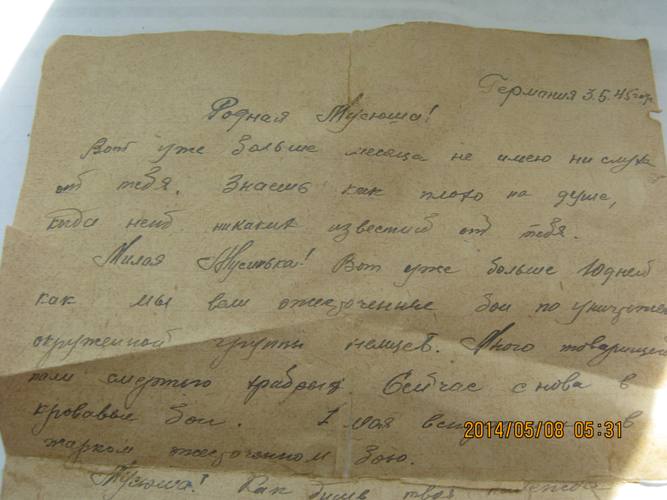 Германия 3.5.45 год
Родная Мусюша!
Вот уже больше месяца не имею ни слуха
от тебя. Знаешь как плохо на душе,
когда нет никаких известий от тебя.
Милая Мусинька! Вот уже больше 10 дней
как мы вели ожесточенные бои по уничтожен
окруженной группы немцев. Много товарищей
пали смертью храбрых. Сейчас снова в
кровавые бои. 1 мая в
жарком ожесточенном бою.
Мусюша! Как твоя
2014/05/08 05:31